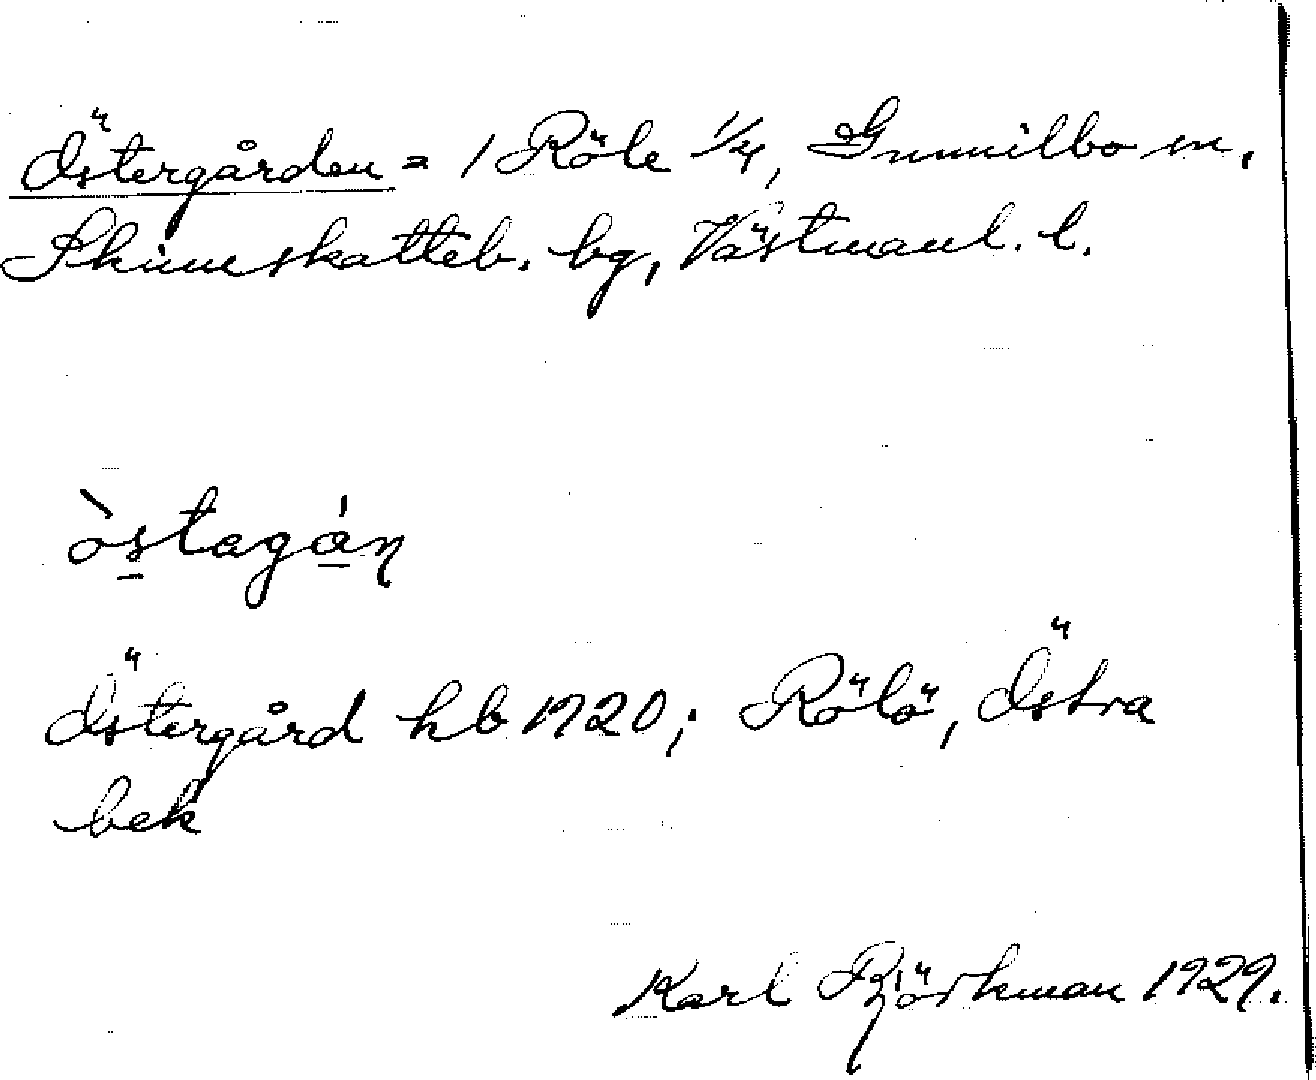 Östergården = 1 Röle 1/4, Gunnilbo sn,
Skinnskatteb. bg, Västmanl. l.
òstagán
Östergård hb 1720; Rölö, Östra
bek
Karl Björkman 1929.